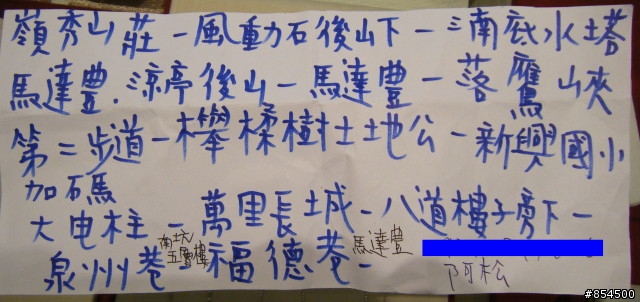 嶺秀山莊－風動石後山下－三南底水塔
馬達豐．涼亭後山－馬達豐－落鷹山峽
第二步道－櫸樹土地公－新興國小
加石馬
大电柱－萬里長城－八道樓子旁下－
南坑
五層樓
泉州巷 福德巷－馬達豐
阿松
#854500